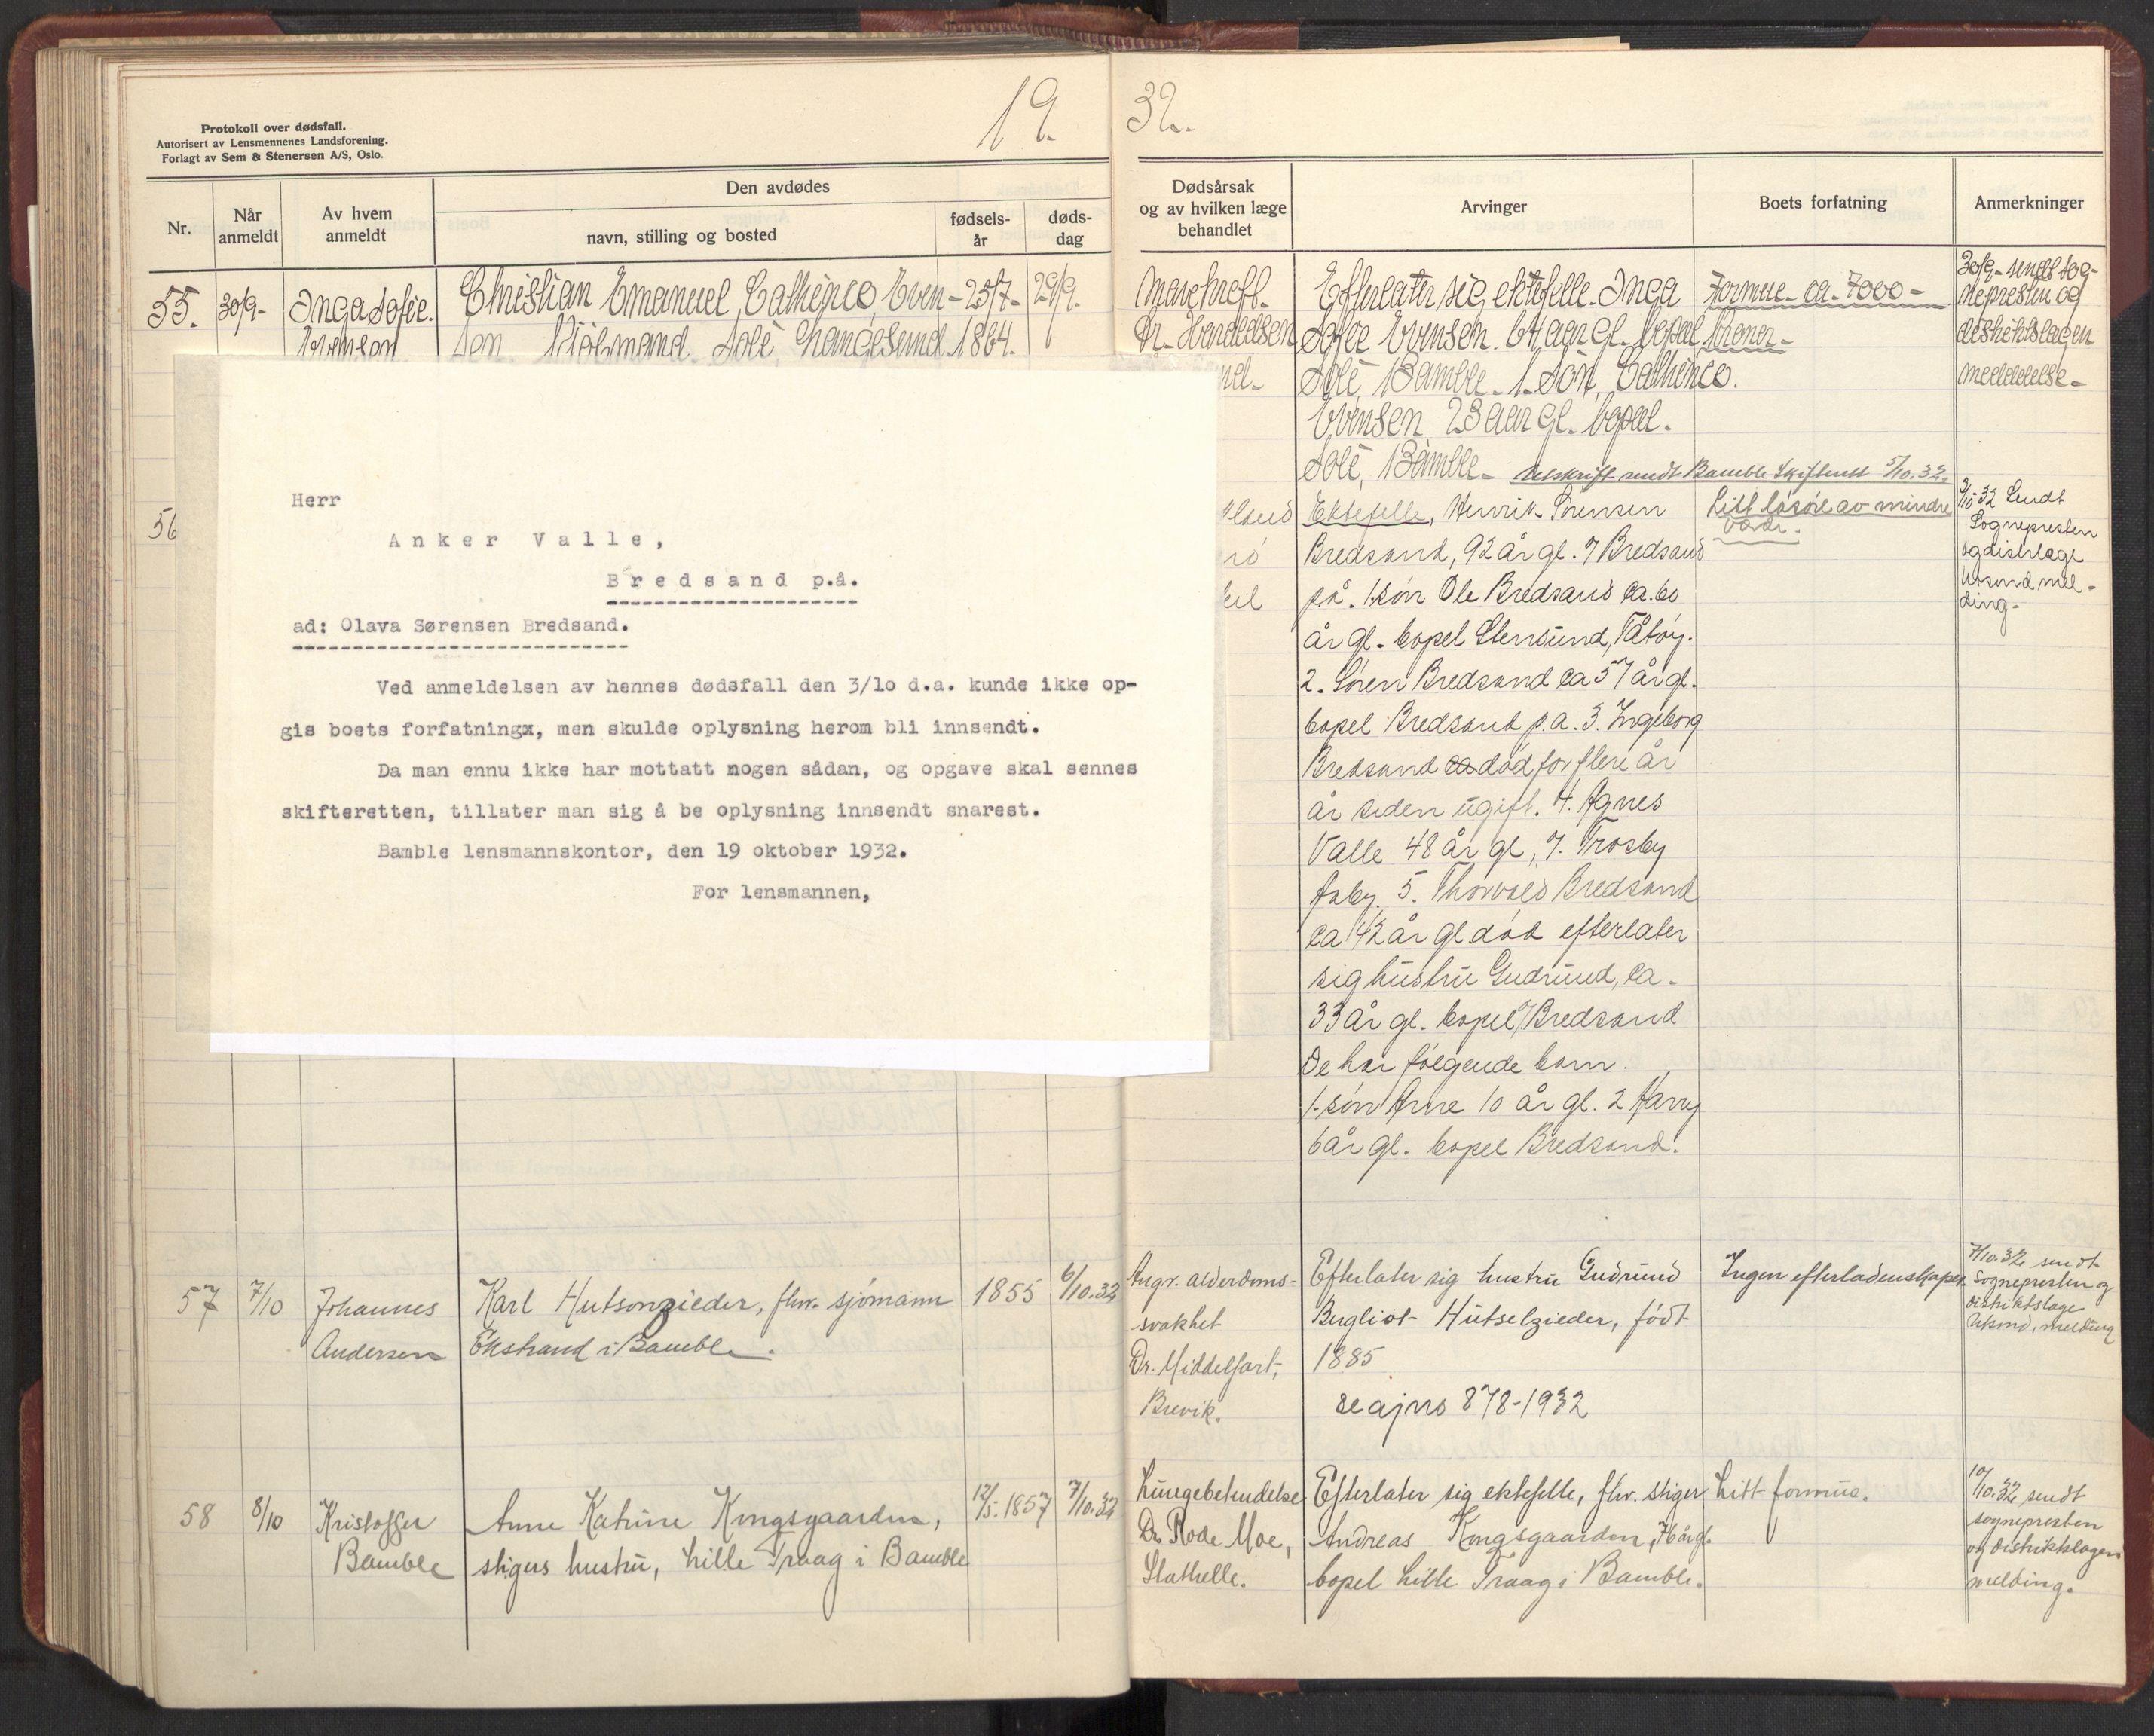 19
32.
Protokoll over dødsfall.
Autorisert av Lensmennenes Landsforening.
Forlagt av Sem & Stenersen A/S, Oslo.
Nr.
Når anmeldt
Av hvem anmeldt
Den avdødes
navn, stilling og bosted
fødsels-år
døds-dag
Dødsårsak og av hvilken læge behandlet
Arvinger
Boets forfatning
Anmerkninger
55.
30/9-
Inga Sofie.
Evensen
Christian Emanuel, Cathinco, Even-
sen
25/7-
1864.
29/9.
Dr. Haraldsen
Efterlater sig ektefelle. Inga
Sofie Evensen. 64 aar gl. bopæl
Bamble. 1. Søn, Cathinco.
Evensen 23 aar gl. bopæl.
Bamble-
Utskrift sendt Bamble Skifterett 5/10.32.
Formue- ca. 7000-
kroner-
30/9- sendt sog-
nepresten og
distriktslægen
meddelelse-
56
Herr
Anker Valle,
Bredsand p.å.
ad: Olava Sørensen Bredsand.
Ved anmeldelsen av hennes dødsfall den 3/1o d.a. kunde ikke op-
gis boets forfatningx, men skulde oplysning herom bli innsendt.
Da man ennu ikke har mottatt nogen sådan, og opgave skal sennes
skifteretten, tillater man sig å be oplysning innsendt snarest.
Bamble lensmannskontor, den 19 oktober 1932.
For lensmannen,
Ektefelle, Henrik Sørensen
Bredsand, 92 år gl. 7 Bredsand
på. 1. søn Ole Bredsand ca. 60
år gl. bopel Stensund, Tåtøy.
2. Søren Bredsand ca 57 år gl.
bopel Bredsand p.a. 3. Ingeborg
Bredsand død for flere år
år siden ugift. 4. Agnes
Valle 48 år gl, 7. Trosby
5. Thorvald Bredsand
ca 42 år gl død efterlater
sig hustru Gudrund, ca.
33 år gl. bopel Bredsand
De har følgende barn.
1. søn Arne 10 år gl. 2 Harry
6 år gl. bopel Bredsand.
Litt løsøre av mindre
verdi.
3/10-32 Sendt
Sognepresten
og distr.læge
Uksund mel-
ding-
57
7/10
Johannes
Andersen
Karl Hutsonzieder, fhv. sjømann
Ekstrand i Bamble.
1855
6/10.32
Angv. alderdoms-
svakhet
Dr. Middelfart,
Brevik.
Efterlater sig hustru Gudrund
Bergliot Hutselzieder, født
1885
se ajno 878-1932
Ingen efterladenskaper.
7/10.32 sendt
Sognepresten og
Distriktslæge
Uksund, melding
58
8/10
Kristoffer
Bamble
Anne Katrine Kongsgaarden,
stigers hustru, Lille Traag i Bamble
12/5.1857
7/10.32
Lungebetendelse
Dr. Rode Moe,
Stathelle.
Efterlater sig ektefelle, fhv. stiger
Andreas Kongsgaarden, 76 år gl.
bopel Lille Traag i Bamble.
Litt formue.
10/10.32 sendt
sognepresten
og distriktslægen
melding.